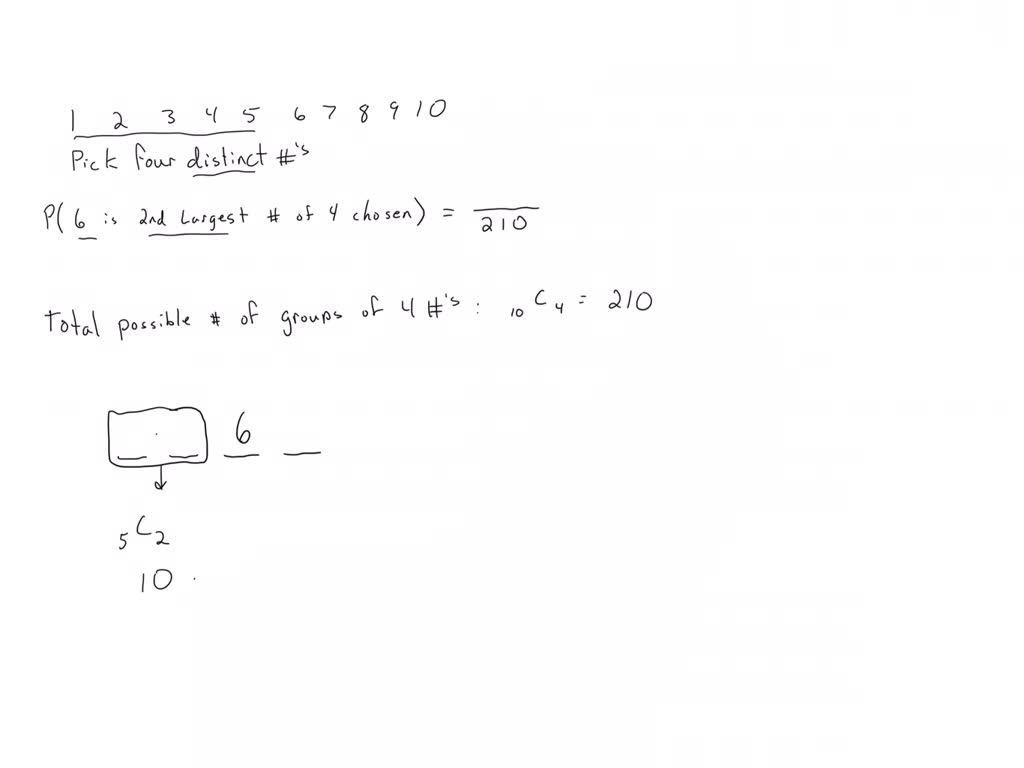 1 2 3 4 5 6 7 8 9 10
Pick four distinct #'s
P( 6 is 2nd Largest # of 4 chosen) = /210
Total possible # of groups of 4 #'s : 10C4 = 210
6
5C2
10 .